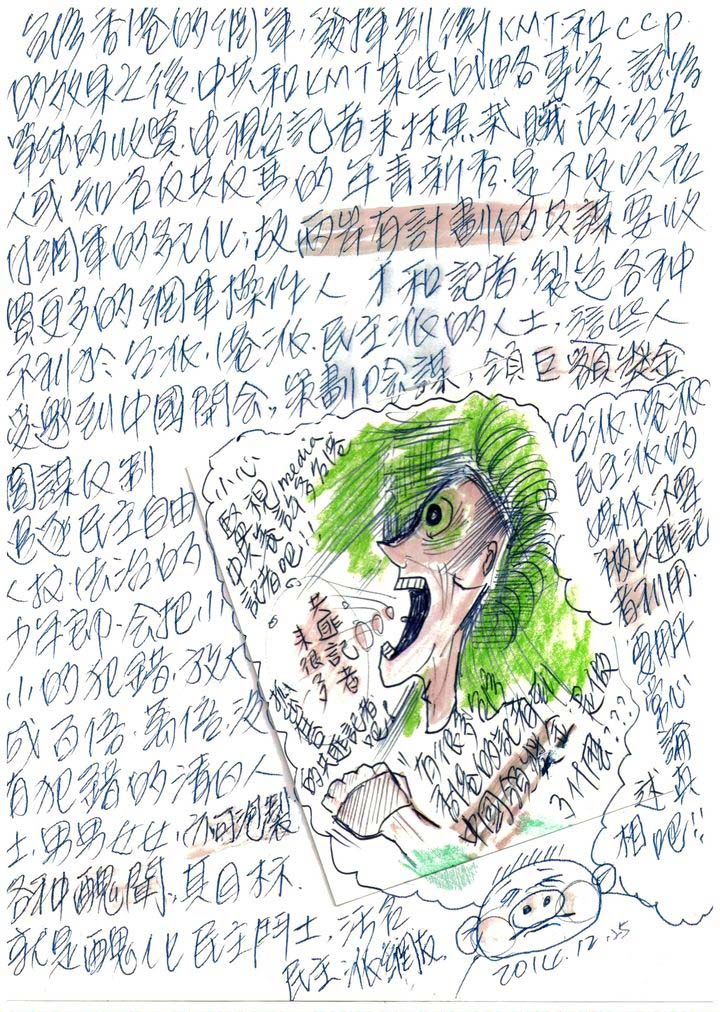 台役香港的網軍,發揮制衡KMT和CCP.
的效果之後,中共和KMT某些战略專家.認為
單純的收買.中視台記者来抹黑栽贓政治名
人或知名仅共仅馬的年青新秀.是不足以在
付網軍的多元化;故兩岸有計劃的共謀要收
買更多的網軍操作人才和記者,製造各种
不利於台派.港派.民主派的人士,這些人
受邀到中國開会,策劃陰謀,領巨額獎金
圖謀仅制
追逐民主自由
人权.法治的
少年郎.会把小
小的犯錯,放大
成百倍.萬倍,沒
有犯錯的清白人
士,男男女女,亦可泡製
各种醜聞,其目标.
就是醜化民主鬥士,活名
民主派網版.
小心
監視media
中共
記者吧!!
共匪記者
来很多
的共匪記者
吧!!
"有很多
的記者
中國的獎金
台派.港派
民主派的
媒体,不要
被共匪記
者利用.
要用平
常心
論
述真
相吧!!
2014.12.25